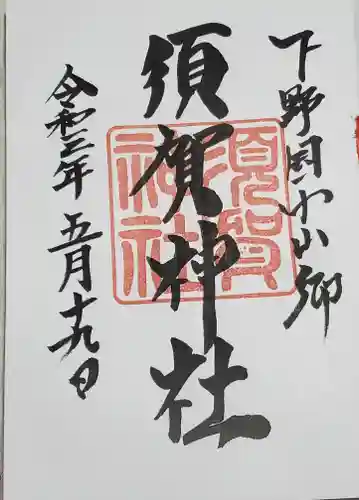 下野国小山郷
須賀神社
須賀神社
令和三年 五月十九日